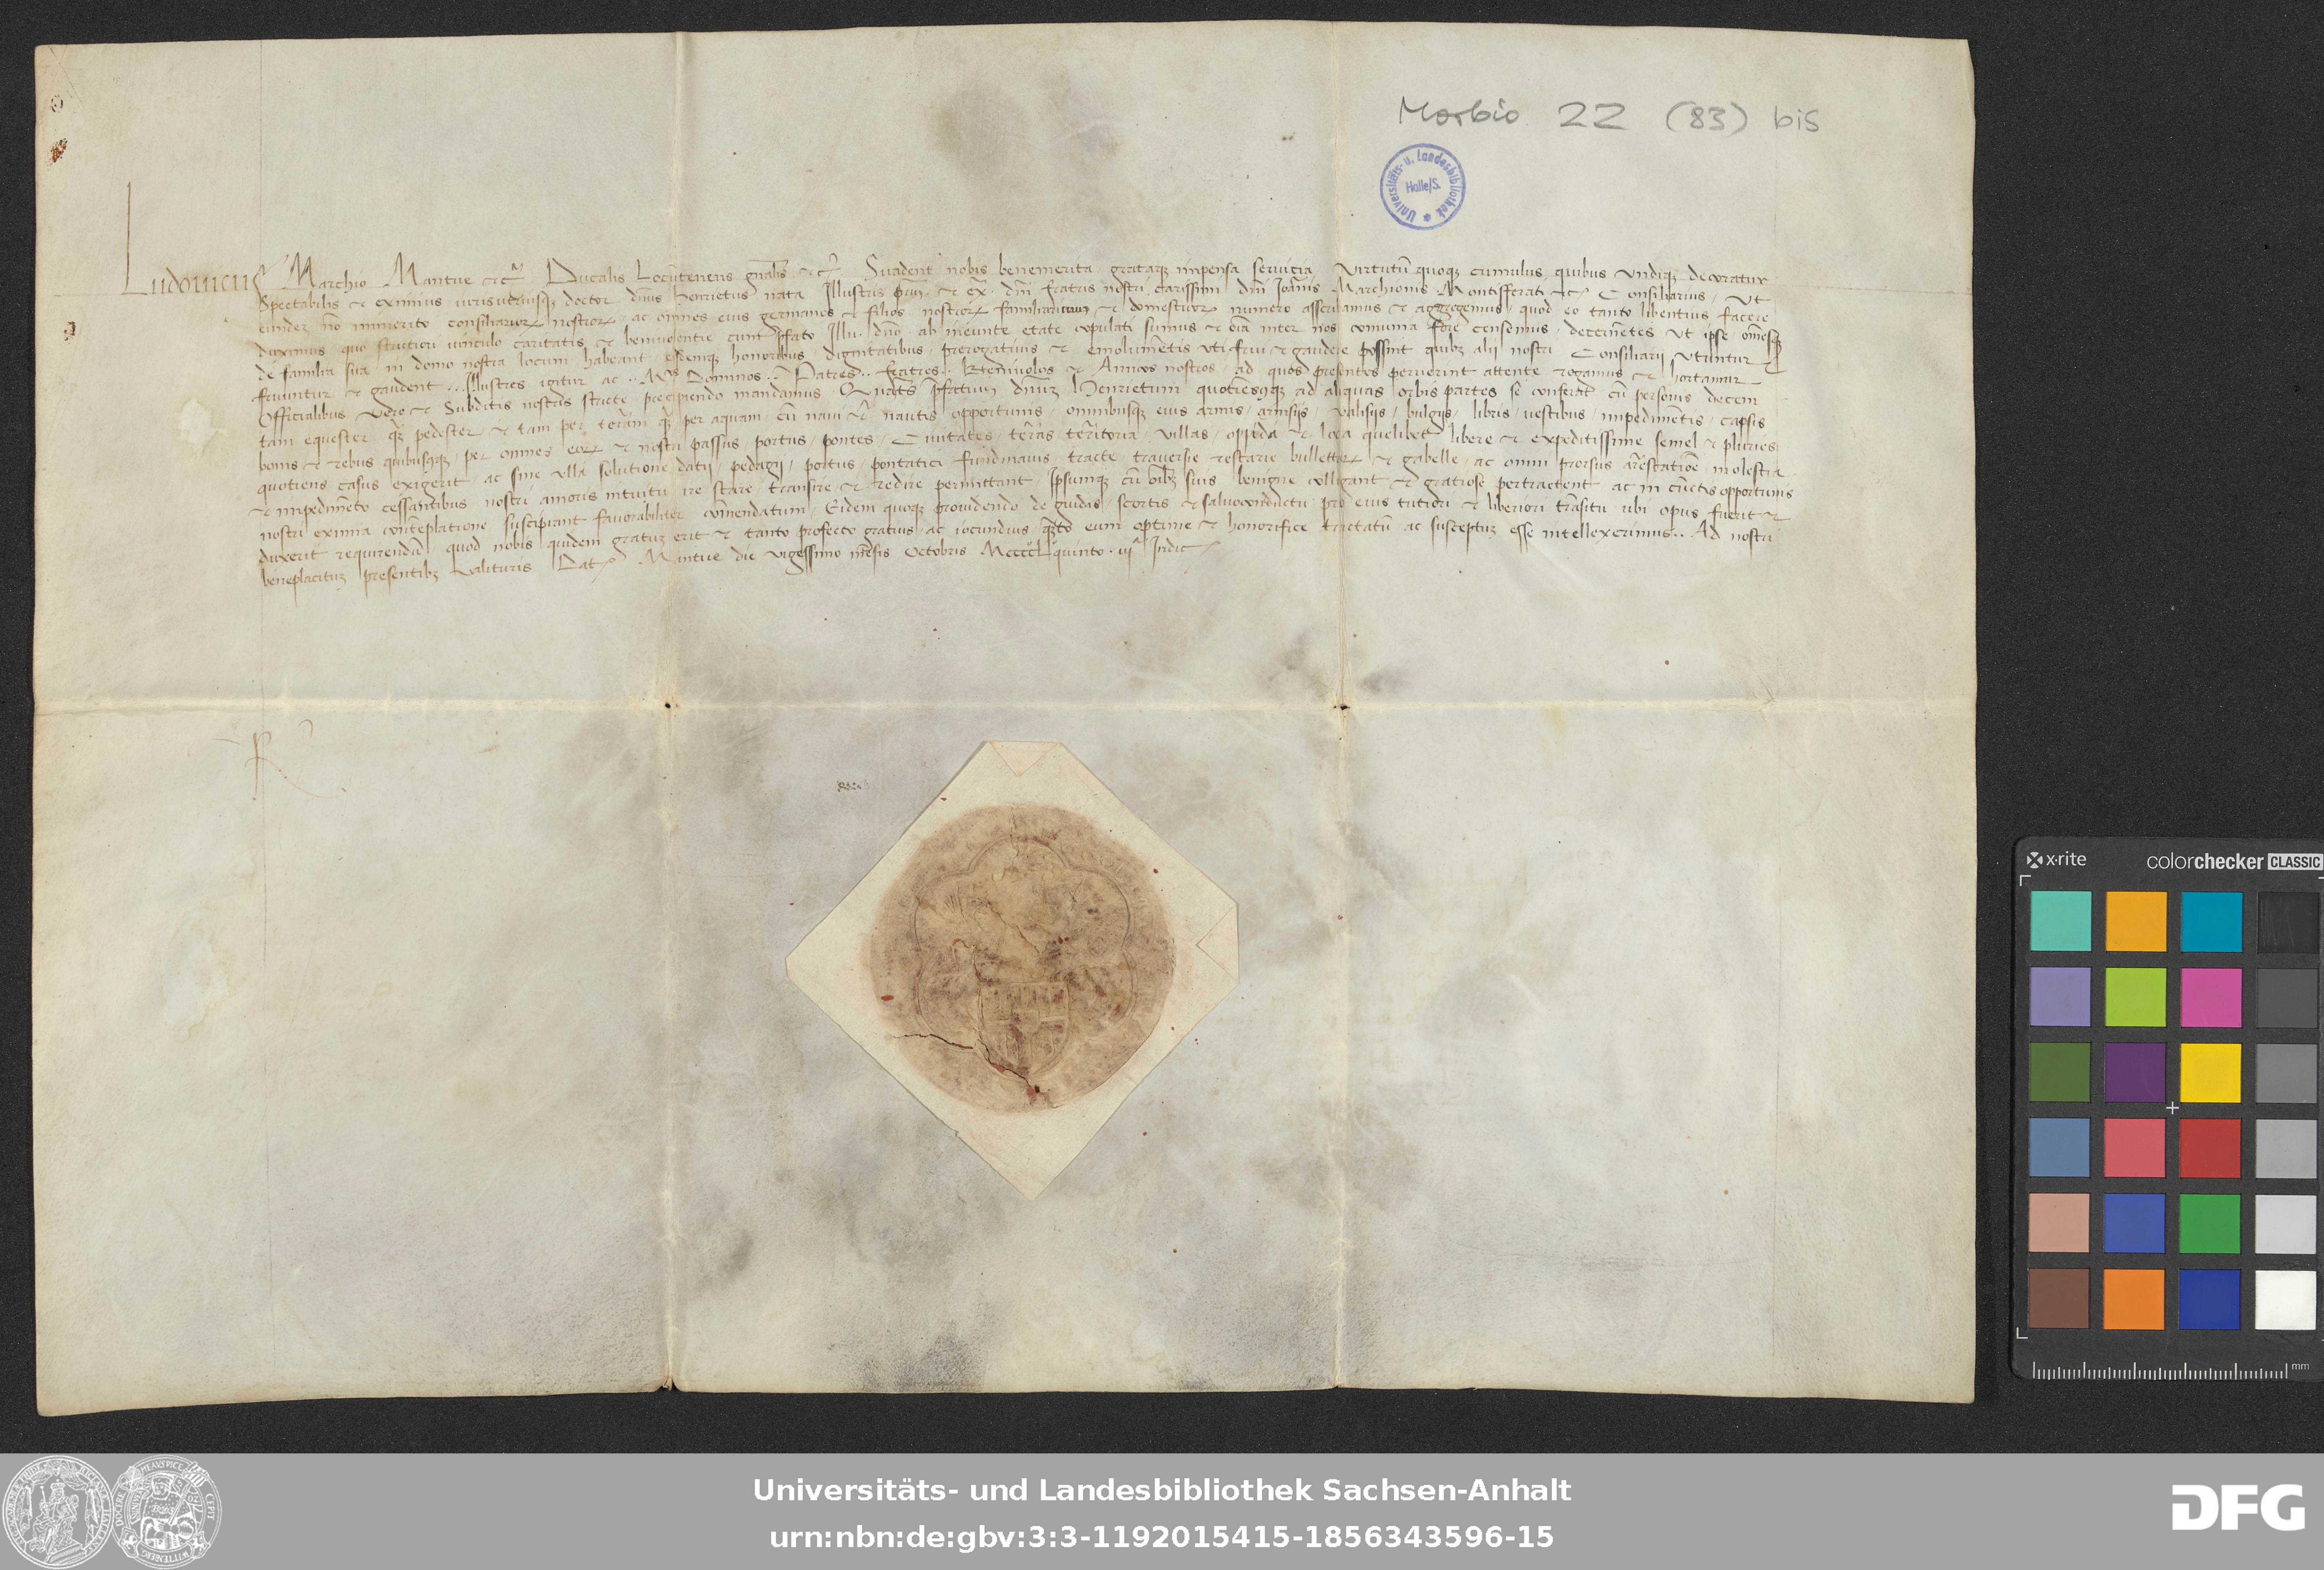 Morbio 22 (83) bis
Universitäts- u. Landesbibliothek
Halle/S.
Ludouicus Marchio Mantue etc̃ Ducalis Locũtenens gñalis etc̃ Suadent nobis benemerita grataqȝ impensa seruicia Virtutũ quoqȝ cumulus quibus vndiqȝ decoratur
Spectabilis et eximius iuris utriusqȝ doctor dñus Henrietus nata Illustris et dñi fratris nostri carissimi dñi Joãnis Marchionis Montisferati etc̃ Consiliarius Ut
eundeȝ nõ immerito consiliarioꝝ nostroꝝ ac omnes eius germanos et filios nostroꝝ familiarium et domesticoꝝ numero asscribamus et aggregemus quod eo tanto libentius facere
duximus quo strictiori vinculo caritatis et beniuolentie cum p̃fato Illu. dño ab ineunte etate copulati sumus et oĩa inter nos comunia fore censemus decernẽtes Ut ipse omẽsqȝ
de familia sua in domo nostra locum habeant eisdemqȝ honoribus dignitatibus prerogatiuis et emolumẽtis uti frui et gaudere possint quibȝ alii nostri Consiliarii Utuntur
fruuntur et gaudent Illustres igitur ac Dominos Patres fratres Beniuolos et Amicos nostros ad quos presentes peruenerint attente rogamus et hortamur
Officialibus vero et Subditis nostris stricte precipiendo mandamus Quatẽs p̃fatum dñuȝ Henrietum quotiensqȝ ad aliquas orbis partes se conferat cũ personis decem
tam equester q̃ȝ pedester et tam per terãm q̃ȝ per aquam cũ naui et nautis opportunis omnibusqȝ eius armis arnisijs valisijs bulgijs libris uestibus impedimẽtis capsis
bonis et rebus quibuscũqȝ per omnes eoꝝ et nostri passus portus pontes Ciuitates terãs territoria villas oppida et loca quelibet libere et expeditissime semel et pluries
quotiens casus exigerit ac sine ulla solutione datij pedagij portus pontatici fundinauis tracte trauersie bullettaꝝ et gabelle ac omni prorsus arestatiõe molestia
et impedimẽto cessantibus nostri amoris intuitu ire stare transire et redire permittant Ipsumqȝ cũ oĩbȝ suis benigne colligant et gratiose pertractent ac in cũctis opportunis
nostri eximia contẽplatione suscipiant fauorabiliter comẽndatum Eidem quoqȝ prouidendo de guidis scortis et saluoconductu pro eius tutiori et liberiori trãsitu ubi opus fuerit et
duxerit requirendũ quod nobis quidem gratuȝ erit et tanto profecto gratius ac iocundius q̃ȝto eum optime et honorifice tractatũ ac susceptuȝ esse intellexerimus Ad nostri
beneplacituȝ presentibȝ valituris Dat̃ Mantue die vigessimo mẽsis Octobris MccccLquinto iijᵃ Indic̃
x·rite
colorchecker CLASSIC
mm
Universitäts- und Landesbibliothek Sachsen-Anhalt
urn:nbn:de:gbv:3:3-1192015415-1856343596-15
DFG